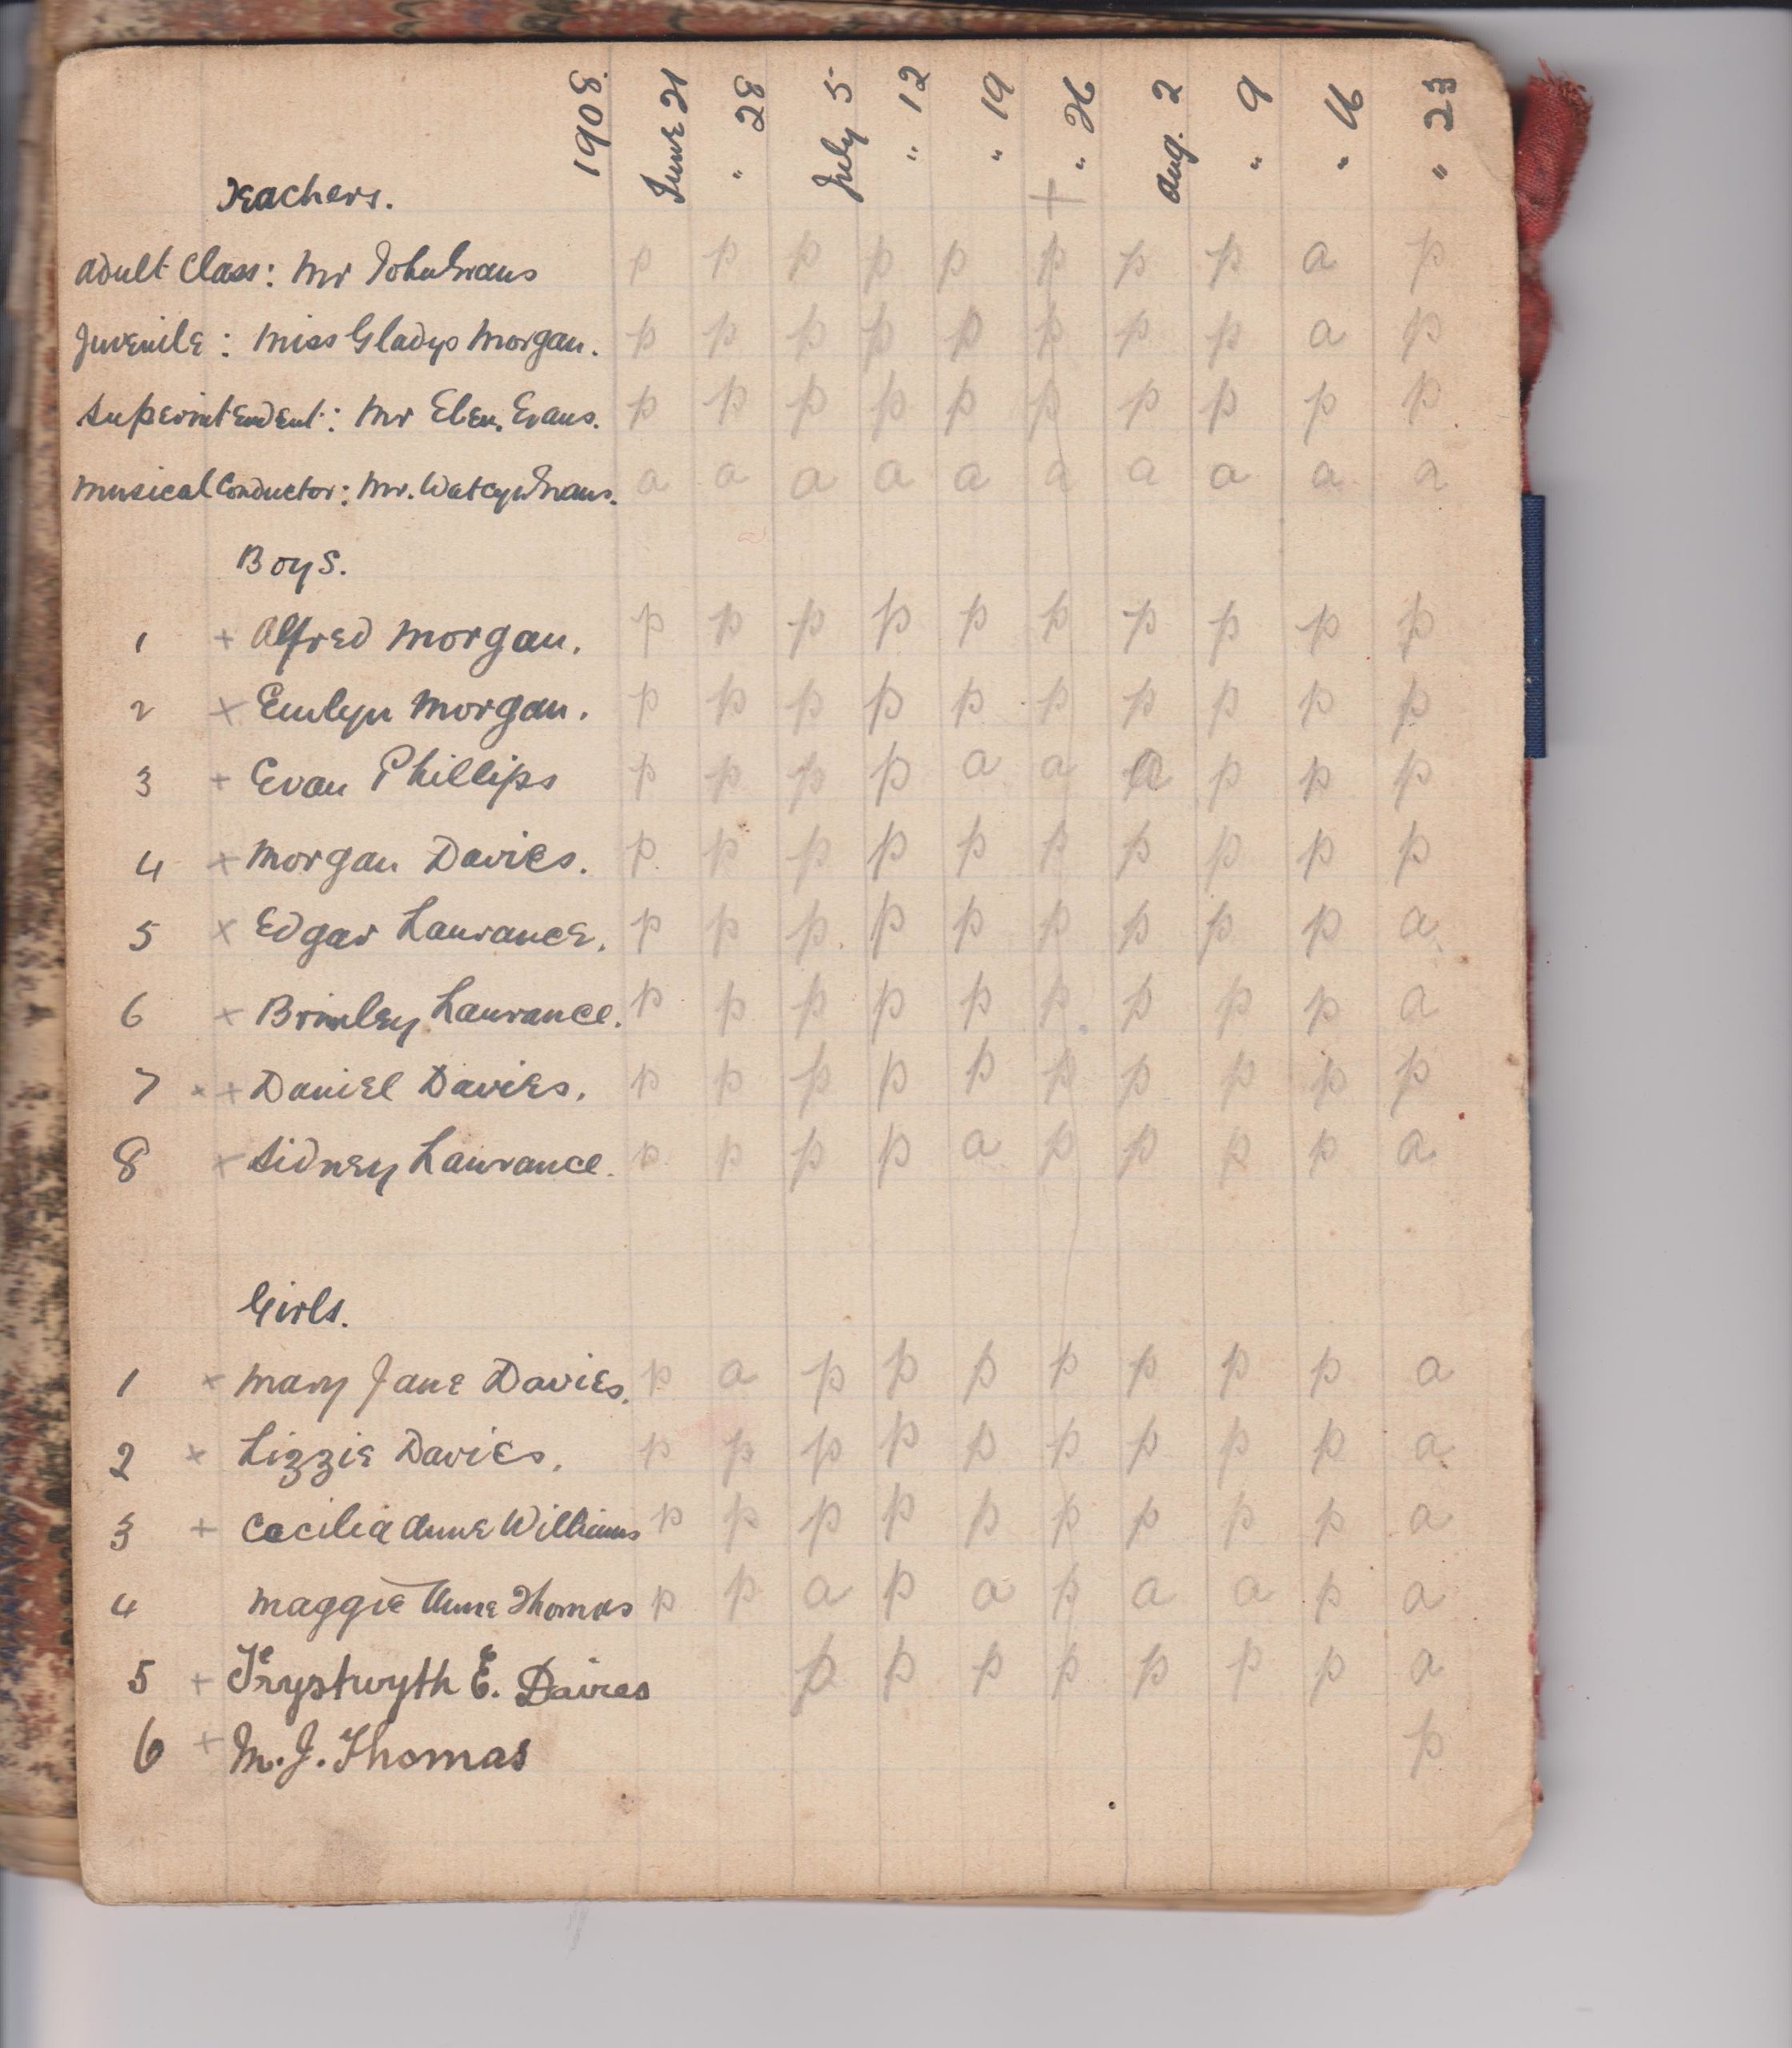 1908. June 21 " 28 July 5 " 12 " 19 + " 26 Aug. 2 " 9 " 16 " 23
Teachers.
Adult Class: Mr John Evans p p p p p p p p a p
Juvenile: Miss Gladys Morgan. p p p p p p p p a p
Superintendent: Mr Eben. Evans. p p p p p p p p p p
Musical Conductor: Mr. Watcyn Evans. a a a a a a a a a a
Boys.
1 + Alfred Morgan. p p p p p p p p p p
2 x Emlyn Morgan. p p p p p p p p p p
3 + Evan Phillips p p p p a a a p p p
4 x Morgan Davies. p p p p p p p p p p
5 x Edgar Laurance. p p p p p p p p p a
6 x Brinley Laurance. p p p p p p p p p a
7 x + Daniel Davies. p p p p p p p p p p
8 x Sidney Laurance. p p p p a p p p p a
Girls.
1 x Mary Jane Davies. p a p p p p p p p a
2 x Lizzie Davies. p p p p p p p p p a
3 + Cecilia Anne Williams p p p p p p p p p a
4 Maggie Anne Thomas p p a p a p a a p a
5 + Trystwyth E. Davies p p p p p p p a
6 + M. J. Thomas p